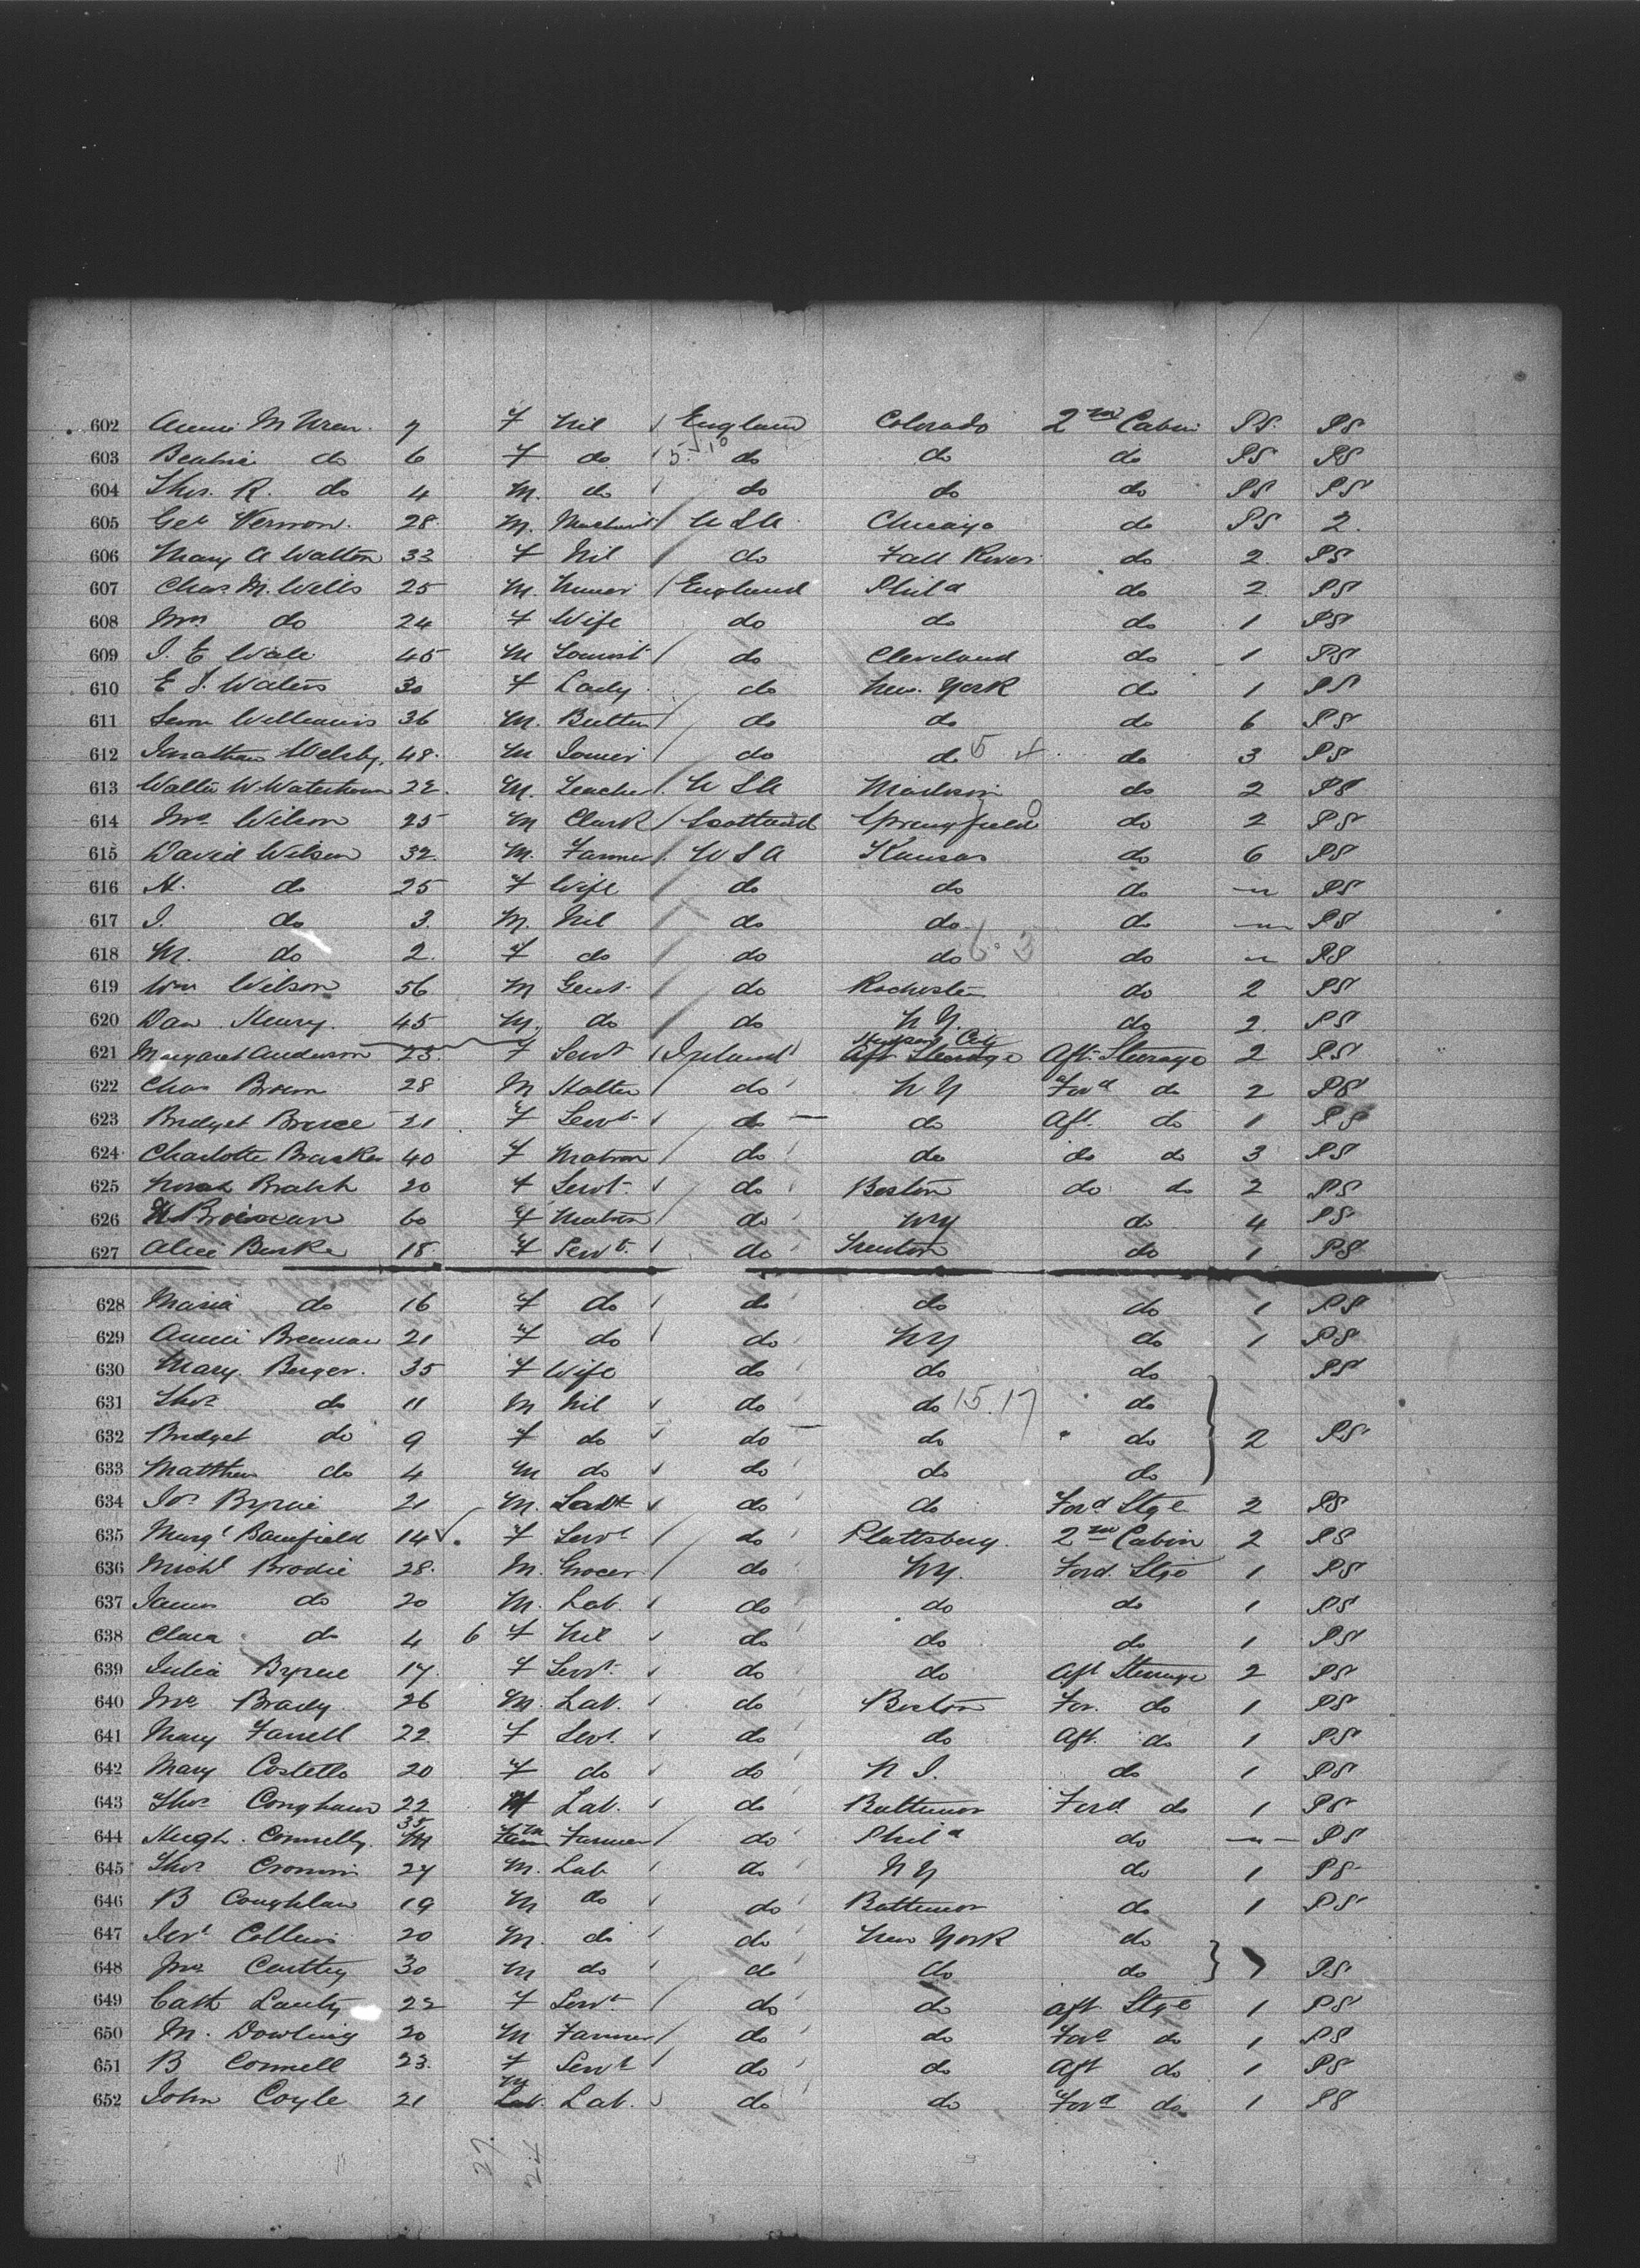 602 Annie M Uren. 7 F Nil England Colorado 2nd Cabin PS PS
603 Beatrice do 6 F do do do do PS PS
604 Thos. R. do 4 M. do do do do PS PS
605 Geo Vernon. 28 M. Machinist USA Chicago do PS 2.
606 Mary A Walton 33 F Nil do Fall River do 2 PS
607 Chas. M. Wills 25 M. Miner England Phila do 2 PS
608 Mrs do 24 F Wife do do do 1 PS
609 J. E 45 M Tourist do Cleveland do 1 PS
610 E J. Waters 30 F Lady do New York do 1 PS
611 Sam Williams 36 M. do do do 6 PS
612 Jonathan Welsby. 48. M Joiner do do 5 4 do 3 PS
613 Walter W Watertown 22. M. Teacher USA Madison do 2 PS
614 Jno Wilson 25 M Clerk Scotland Springfield do 2 PS
615 David Wilson 32 M. Farmer USA Kansas do 6 PS
616 A. do 25 F Wife do do do PS
617 J. do 3. M. Nil do do do PS
618 M. do 2. F do do do 6. 3 do PS
619 Wm Wilson 56 M Gent do Rochester do 2 PS
620 Dan Henry. 45 M. do do N Y. do 2 PS
621 Margaret Anderson 23. F Servt Ireland Aft Steerage City Aft Steerage 2 PS
622 Chas Brown 28 M Hatter do N Y Ford do 2 PS
623 Bridget 21 F Servt do do Aft. do 1 PS
624 Charlotte 40 F Matron do do do do 3 PS
625 Norah 20 F Servt do Boston do do 2 PS
626 60 F Matron do NY do 4 PS
627 Alice Burke 18 F Servt. do Trenton do 1 PS
628 Maria do 16 F do do do do 1 PS
629 Annie Brennan 21 F do do NY do 1 PS
630 Mary Berger. 35 F Wife do do do PS
631 Thos do 11 M Nil do do 15.17 do
632 Bridget do 9 F do do do do 2 PS
633 Matthew do 4 M do do do do
634 Jos Byrne 21 M. do do Ford Stge 2 PS
635 Margt Banfield 14 F Servt do Plattsburg. 2nd Cabin 2 PS
636 Michl Brodie 28. M. Grocer do NY. Ford. Stge 1 PS
637 James do 20 M. Lab. do do do 1 PS
638 Clara do 4 6 F Nil do do do 1 PS
639 Julia Byrne 17. F Servt. do do Aft Steerage 2 PS
640 Jno Brady 26 M. Lab. do Boston For. do 1 PS
641 Mary Farrell 22 F Servt. do do Aft. do 1 PS
642 Mary Costello 20 F do do N J. do 1 PS
643 Thos 22 M Lab. do Baltimor Ford do 1 PS
644 Hugh Connelly. 35 M Farmer do Phila do PS
645 Thos Cronin 24 M. Lab do N Y do 1 PS
646 B Coughlan 19 M do do Baltimor do 1 PS
647 Collins 20 M. do do New York do
648 Jno 30 M do do do do PS
649 Cath 22 F Servt do do Aft Stge 1 PS
650 M. Dowling 20 M Farmer do do Ford do 1 PS
651 B Connell 23. F Servt do do Aft do 1 PS
652 John Coyle 21 M Lab. do do Ford do 1 PS
27. 24